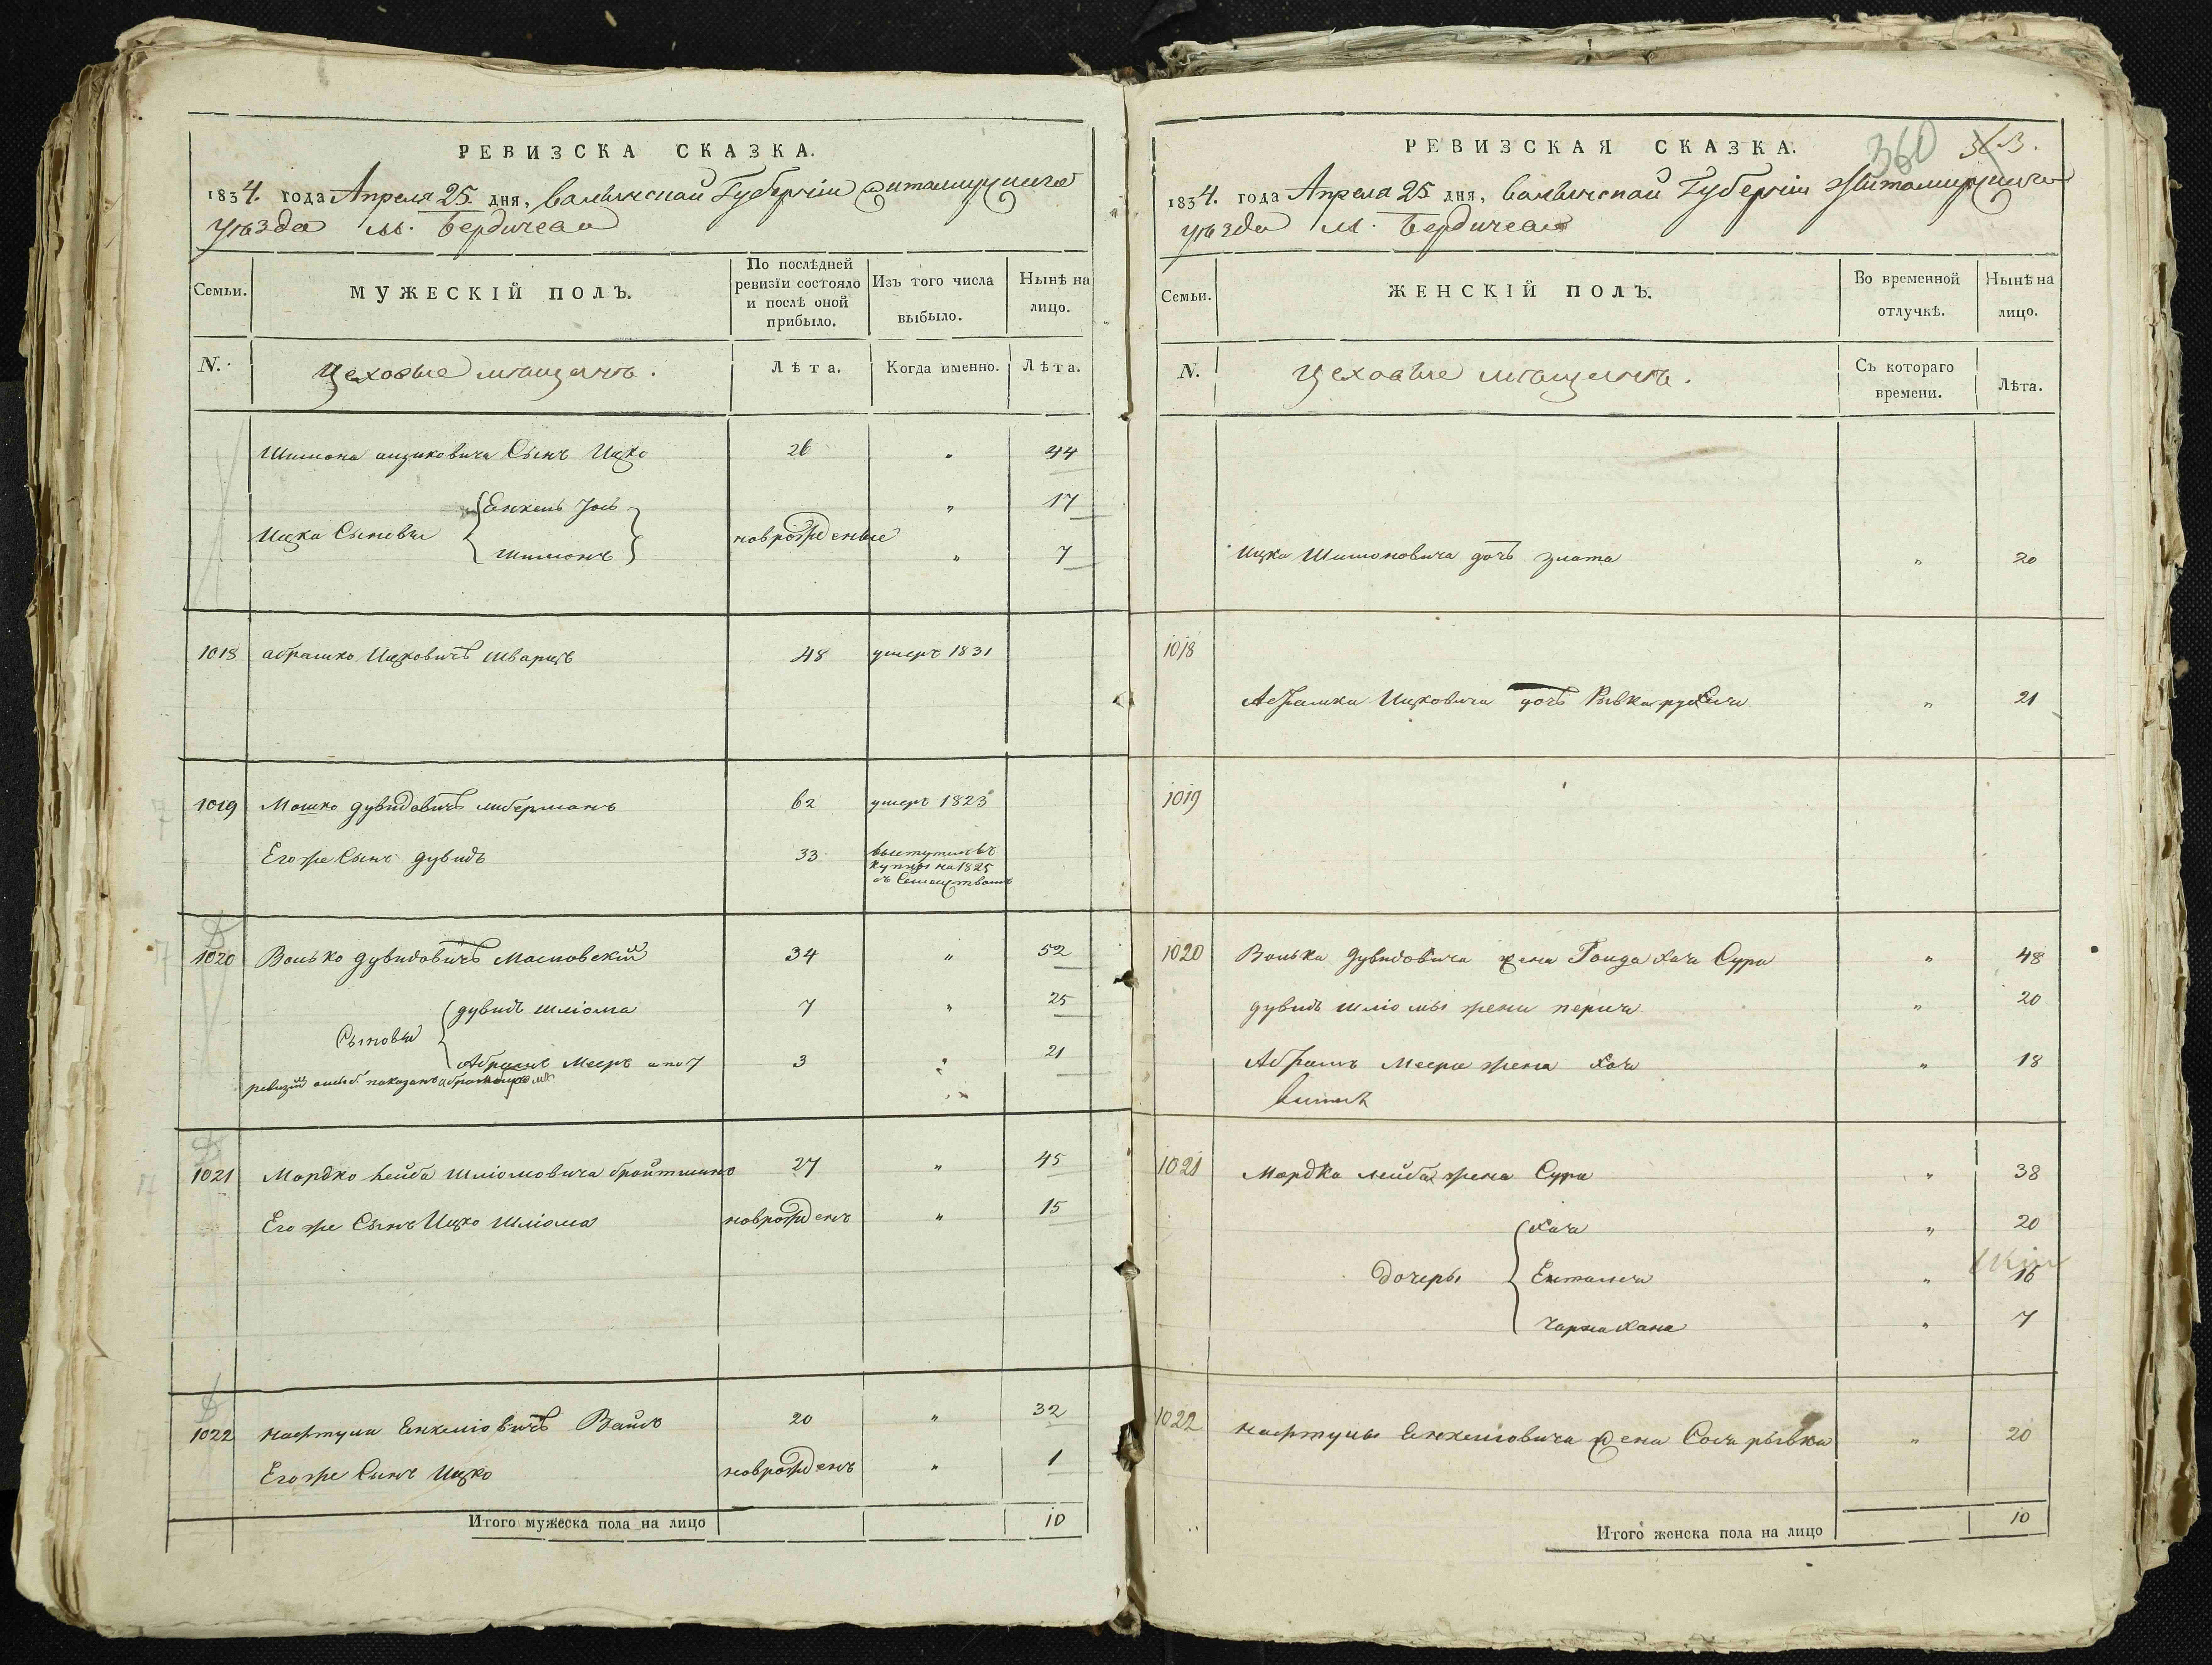 РЕВИЗСКА СКАЗКА.
1834. года Апреля 25. дня, Валынской Губернии Житомирскаго
уѣзда м. Бердичева
Семьи.
МУЖЕСКІЙ ПОЛЪ.
По послѣдней
ревизіи состояло
и послѣ оной
прибыло.
Изъ того числа
выбыло.
Нынѣ на
лицо.
N.
Цеховые мѣщанъ.
Лѣта.
Когда именно.
Лѣта.
Шимона Сынъ Ицко 26 " 44
Енкель Іось " 17
Ицка Сыновья новрожденые
Шимонъ " 7
1018 абрашко Ицковичъ шварцъ 48 умеръ 1831
1019 Мошко дувидовичъ либерманъ 62 умеръ 1823
Его же Сынъ дувидъ 33
на 1825
1020 Волько дувидовичъ 34 " 52
дувидъ шліома 7 " 25
Сыновья
Абрамъ Мееръ 3 " 21
ревизіи показанъ
1021 Мордко Лейба Шліомовича 27 " 45
Его же Сынъ Ицко Шліома новрожденъ " 15
1022 нафтули Енкеліовичъ 20 " 32
Его же Сынъ Ицко новрожденъ " 1
Итого мужеска пола на лицо 10
360 363.
РЕВИЗСКАЯ СКАЗКА.
1834. года Апреля 25 дня, Валынской Губернии Житомирскаго
уѣзда м. Бердичева
Семьи.
ЖЕНСКІЙ ПОЛЪ.
Во временной
отлучкѣ.
Нынѣ на
лицо.
N.
Цеховые мѣщанъ.
Съ котораго
времени.
Лѣта.
Ицка Шимоновича дочь злата " 20
1018
Абрашка Ицковича дочь Рывка " 21
1019
1020 Волька дувидовича жена Хая Сура " 48
дувидъ шліомы жена " 20
Абрамъ Меера жена Хая " 18
1021 Мордка лейба жена Сура " 38
Хая " 20
Дочеры " 16
Чарна Хана " 7
1022 нафтулы Енкеліовича жена рывка " 20
Итого женска пола на лицо 10